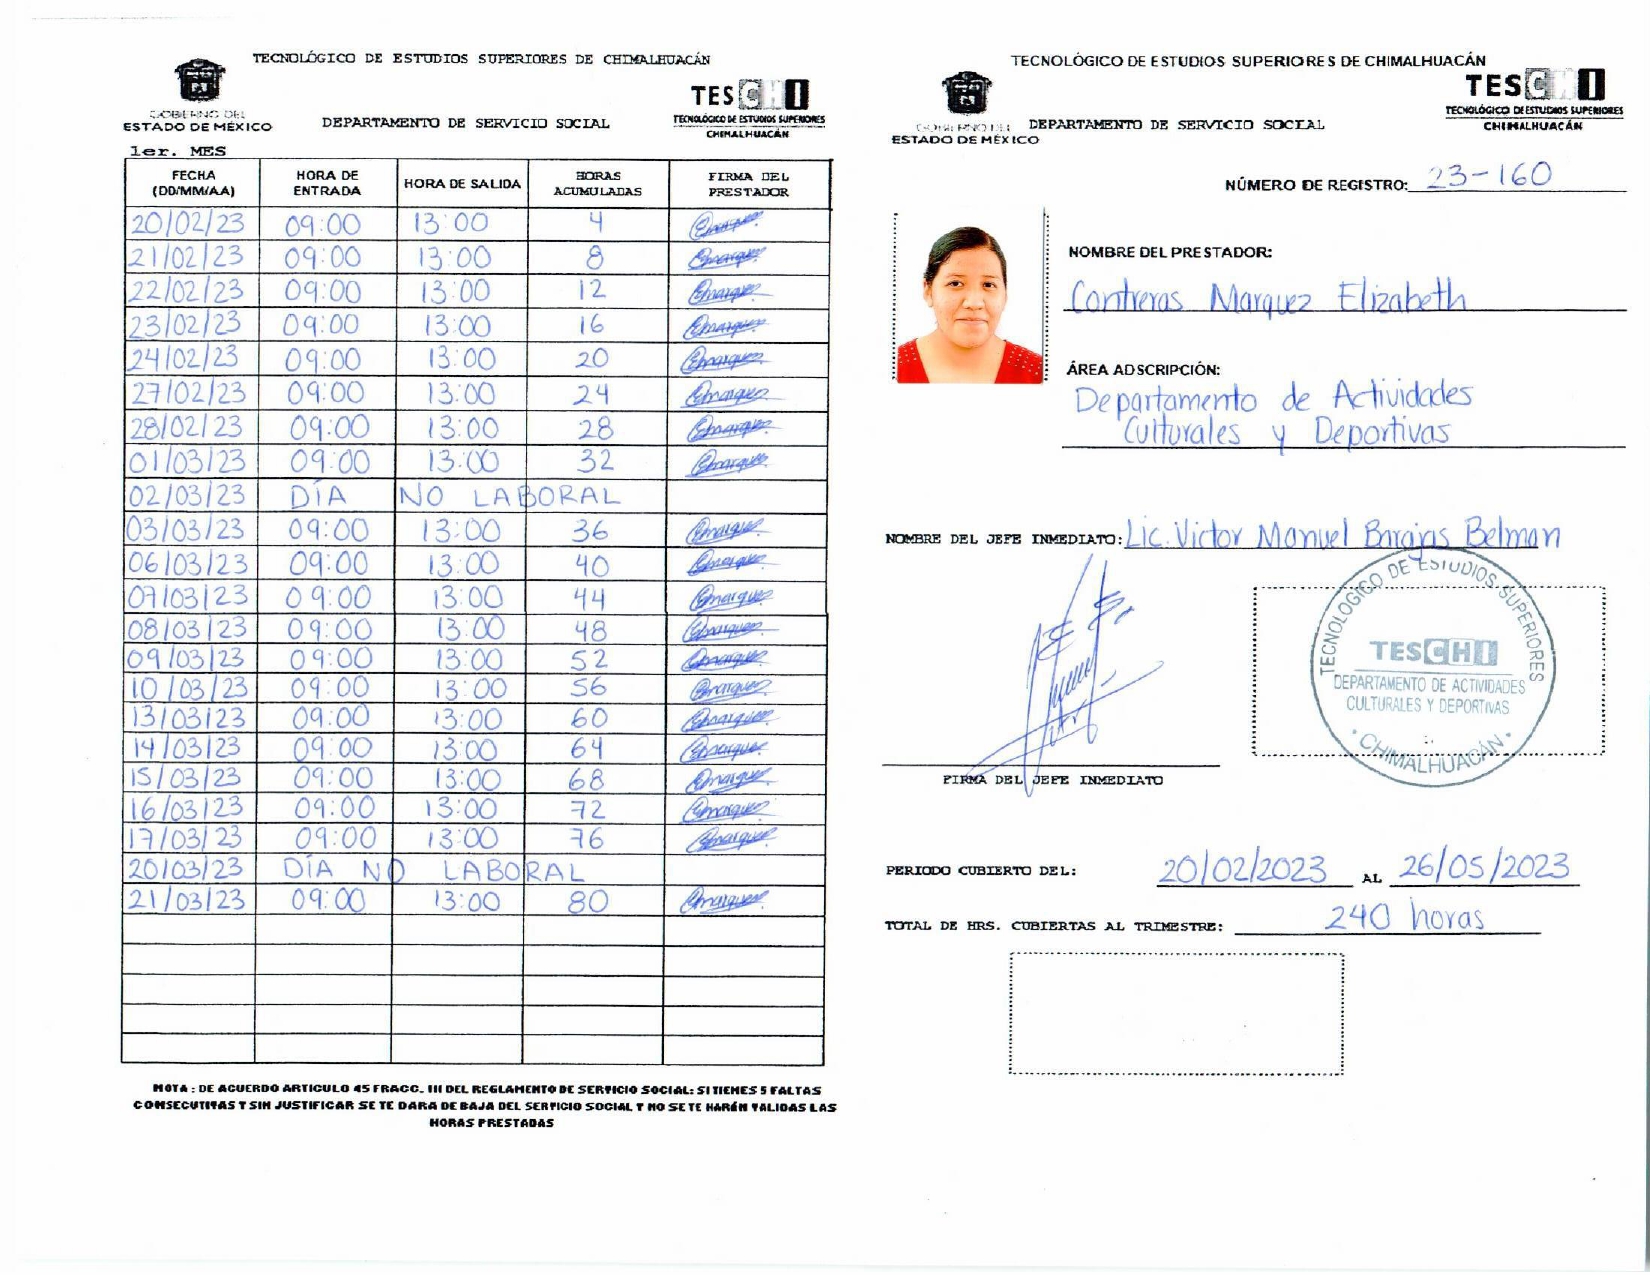 TECNOLÓGICO DE ESTUDIOS SUPERIORES DE CHIMALHUACÁN
GOBIERNO DEL
ESTADO DE MÉXICO
DEPARTAMENTO DE SERVICIO SOCIAL
TESCHI
TECNOLÓGICO DE ESTUDIOS SUPERIORES
CHIMALHUACÁN
1er. MES
FECHA (DD/MM/AA) HORA DE ENTRADA HORA DE SALIDA HORAS ACUMULADAS FIRMA DEL PRESTADOR
20/02/23 09:00 13:00 4 Cmarquez
21/02/23 09:00 13:00 8 Cmarquez
22/02/23 09:00 13:00 12 Cmarquez
23/02/23 09:00 13:00 16 Cmarquez
24/02/23 09:00 13:00 20 Cmarquez
27/02/23 09:00 13:00 24 Cmarquez
28/02/23 09:00 13:00 28 Cmarquez
01/03/23 09:00 13:00 32 Cmarquez
02/03/23 DÍA NO LABORAL
03/03/23 09:00 13:00 36 Cmarquez
06/03/23 09:00 13:00 40 Cmarquez
07/03/23 09:00 13:00 44 Cmarquez
08/03/23 09:00 13:00 48 Cmarquez
09/03/23 09:00 13:00 52 Cmarquez
10/03/23 09:00 13:00 56 Cmarquez
13/03/23 09:00 13:00 60 Cmarquez
14/03/23 09:00 13:00 64 Cmarquez
15/03/23 09:00 13:00 68 Cmarquez
16/03/23 09:00 13:00 72 Cmarquez
17/03/23 09:00 13:00 76 Cmarquez
20/03/23 DÍA NO LABORAL
21/03/23 09:00 13:00 80 Cmarquez
NOTA : DE ACUERDO ARTICULO 45 FRACC. III DEL REGLAMENTO DE SERVICIO SOCIAL: SI TIENES 5 FALTAS
CONSECUTIVAS Y SIN JUSTIFICAR SE TE DARA DE BAJA DEL SERVICIO SOCIAL Y NO SE TE HARÁN VALIDAS LAS
HORAS PRESTADAS
TECNOLÓGICO DE ESTUDIOS SUPERIORES DE CHIMALHUACÁN
GOBIERNO DEL
ESTADO DE MÉXICO
DEPARTAMENTO DE SERVICIO SOCIAL
TESCHI
TECNOLÓGICO DE ESTUDIOS SUPERIORES
CHIMALHUACÁN
NÚMERO DE REGISTRO: 23-160
NOMBRE DEL PRESTADOR:
Contreras Marquez Elizabeth
ÁREA ADSCRIPCIÓN:
Departamento de Actividades
Culturales y Deportivas
NOMBRE DEL JEFE INMEDIATO: Lic. Victor Manuel Barajas Belman
TECNOLOGICO DE ESTUDIOS SUPERIORES
TESCHI
DEPARTAMENTO DE ACTIVIDADES
CULTURALES Y DEPORTIVAS
CHIMALHUACÁN
FIRMA DEL JEFE INMEDIATO
PERIODO CUBIERTO DEL: 20/02/2023 AL 26/05/2023
TOTAL DE HRS. CUBIERTAS AL TRIMESTRE: 240 horas